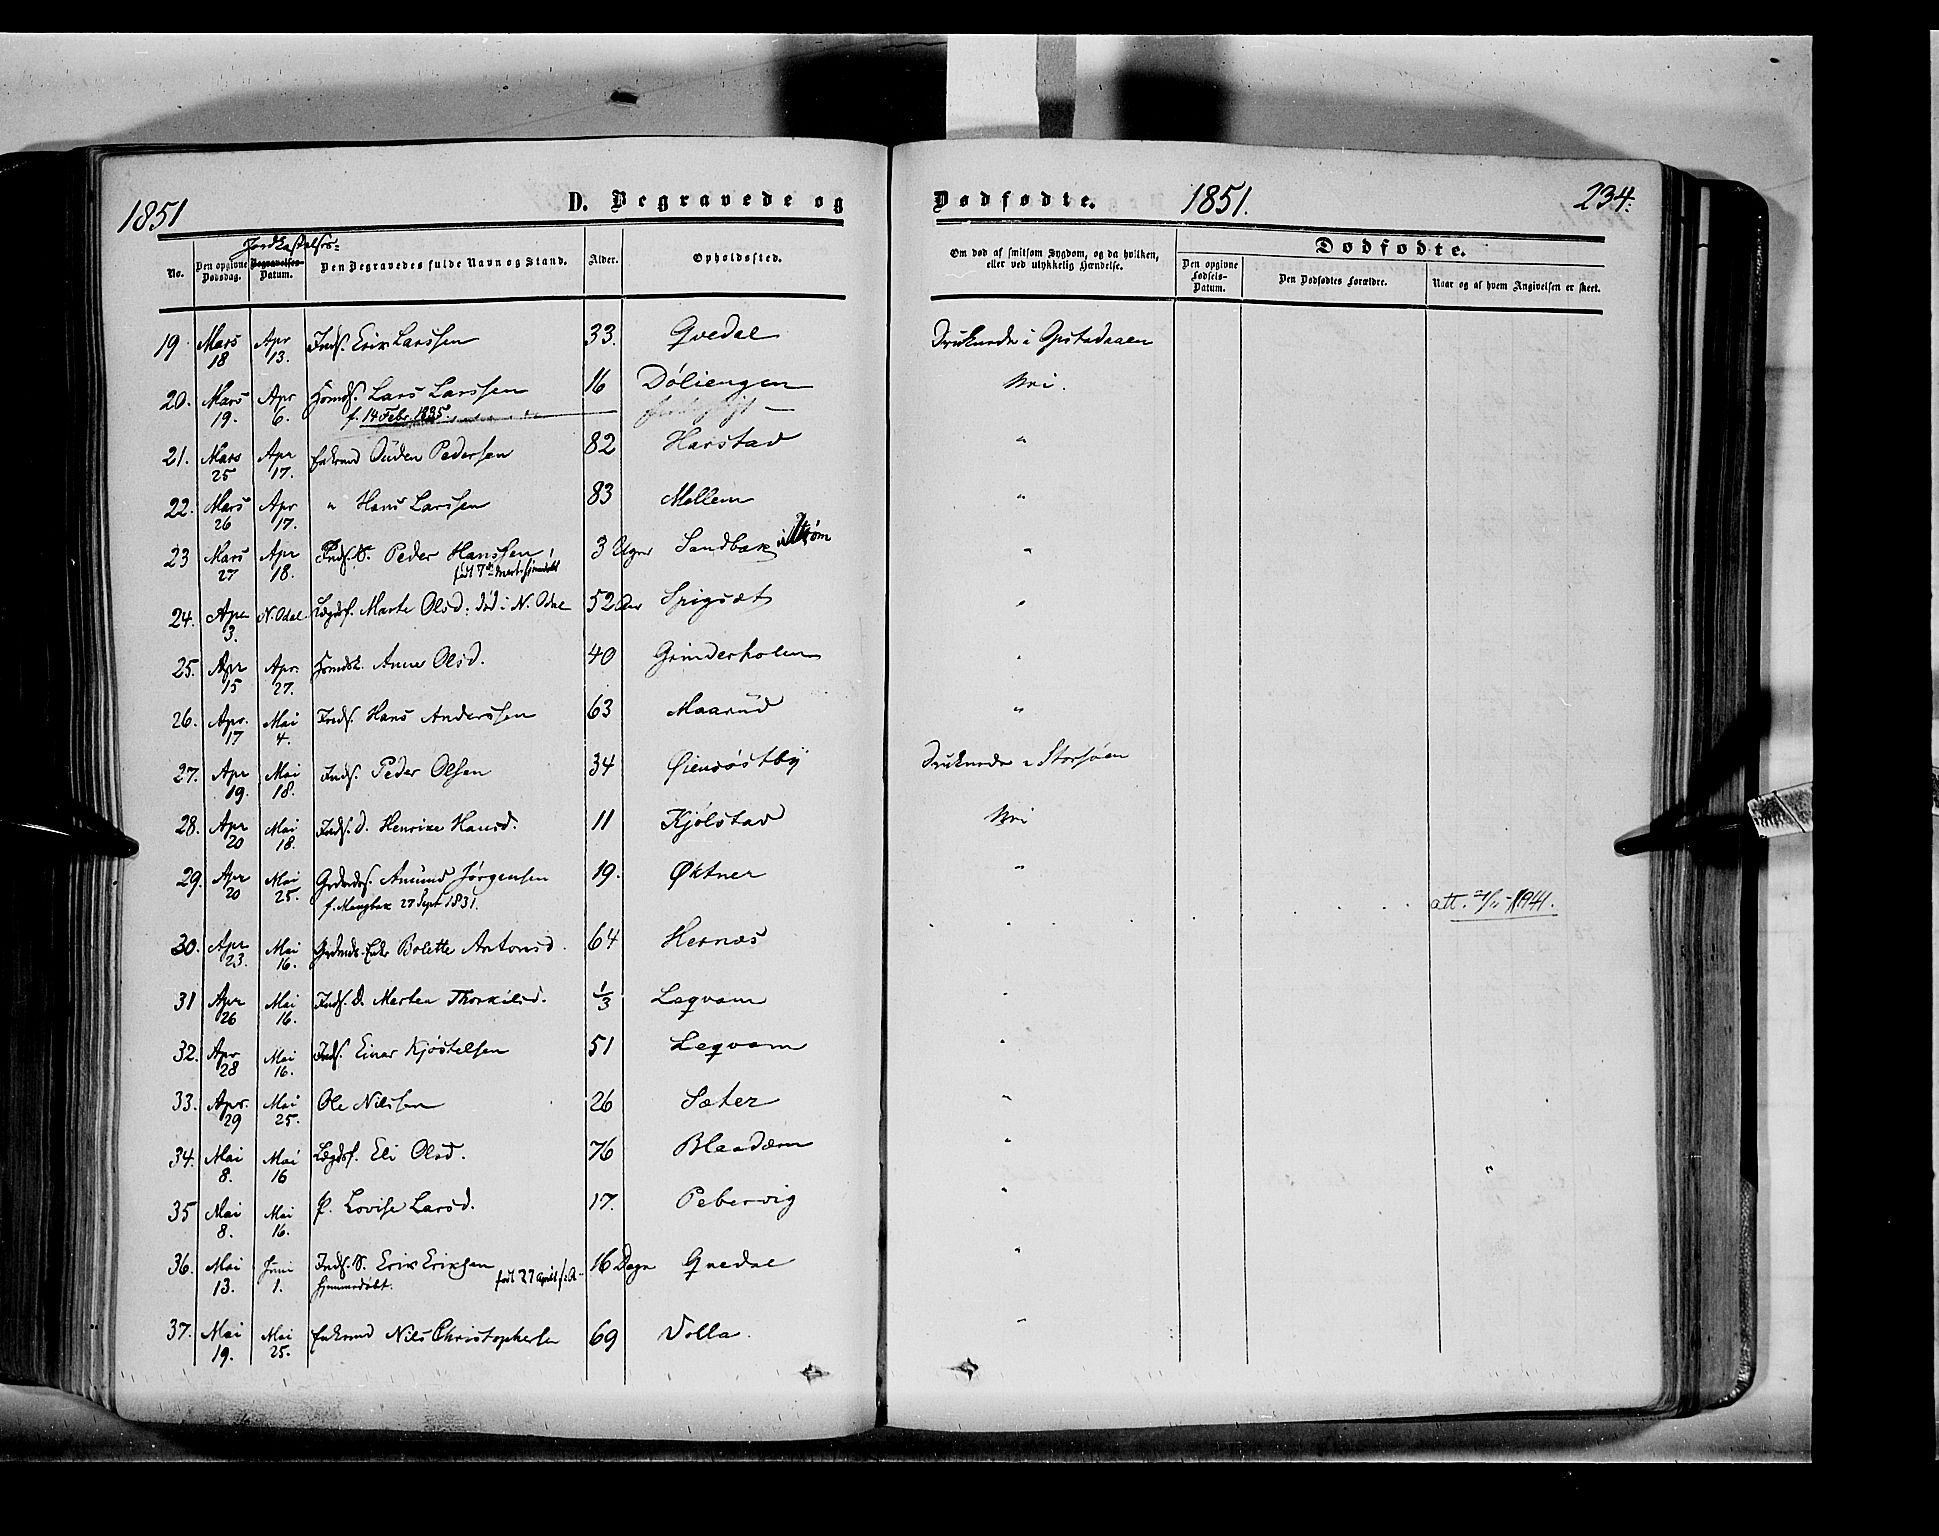 1851
D. Begravede og
Dødfødte.
1851.
234.
Jordkastelses-
No.
Den opgivne Dødsdag.
Begravelses-Datum.
Den Begravedes fulde Navn og Stand.
Alder.
Opholdssted.
Om død af smitsom Sygdom, og da hvilken, eller ved ulykkelig Hændelse.
Dødfødte.
Den opgivne Fødsels-Datum.
Den Dødfødtes Forældre.
Naar og af hvem Angivelsen er skeet.
19 Mars 18 Apr 13. Inds. Erik Larssen 33. Gvedal Druknede i Opstadaaen
20. Mars 19. Apr 6. Lars Larssen 16 Døliengen Nei.
f. 14 Febr. 1835.
21. Mars 25 Apr 17. Enkemd Auden Pedersen 82 Harstad "
22. Mars 26 Apr 17. " Hans Larssen 83 Mellem "
23 Mars 27 Apr 18. Inds. S. Peder Hanssen, 3 Uger Sandbæk i Strøm "
født 7de Mart. hjemmedøbt
24. Apr 3. N. Odal. Lægdsl. Marte Olsd. død i N. Odal 52 Aar Spigsæt "
25. Apr 15 Apr. 27. Anne Olsd. 40 Grinderholen "
26. Apr. 17 Mai 4. Inds. Hans Anderssen 63 Maarud "
27. Apr 19. Mai 18. Inds. Peder Olsen 34 Øiensøstby Druknede i Storsøen
28. Apr 20 Mai 18. Inds. D. Henrike Hansd. 11 Kjølstad Nei
29. Apr 20 Mai 25. Amund Jørgensen 19. Øktner "
f. Mangbæk 27 Sept 1831. att. 1941.
30. Apr 23. Mai 16. Grdmds. Enke Bolette Antonsd. 64 Hernæs "
31 Apr 26 Mai 16. Inds. D. Marten Thorkilsd. 1/3 Leqvam "
32. Apr 28 Mai 16. Inds. Einar Kjøstelsen 51 Leqvam "
33. Apr. 29 Mai 25. Ole Nilssen 26 Sæter "
34. Mai 8. Mai 16 Lægdsl. Eli Olsd. 76 Blaadæm " "
35 Mai 8. Mai 16. P. Lovise Larsd. 17. Pebervig "
36. Mai 13. Juni 1. Inds. S. Erik Eriksen 16 Dage Gvedal "
Hjemmedøbt. født 27 April
37. Mai 19. Mai 25. Enkemd Nils Christophersen 69 Volla. "